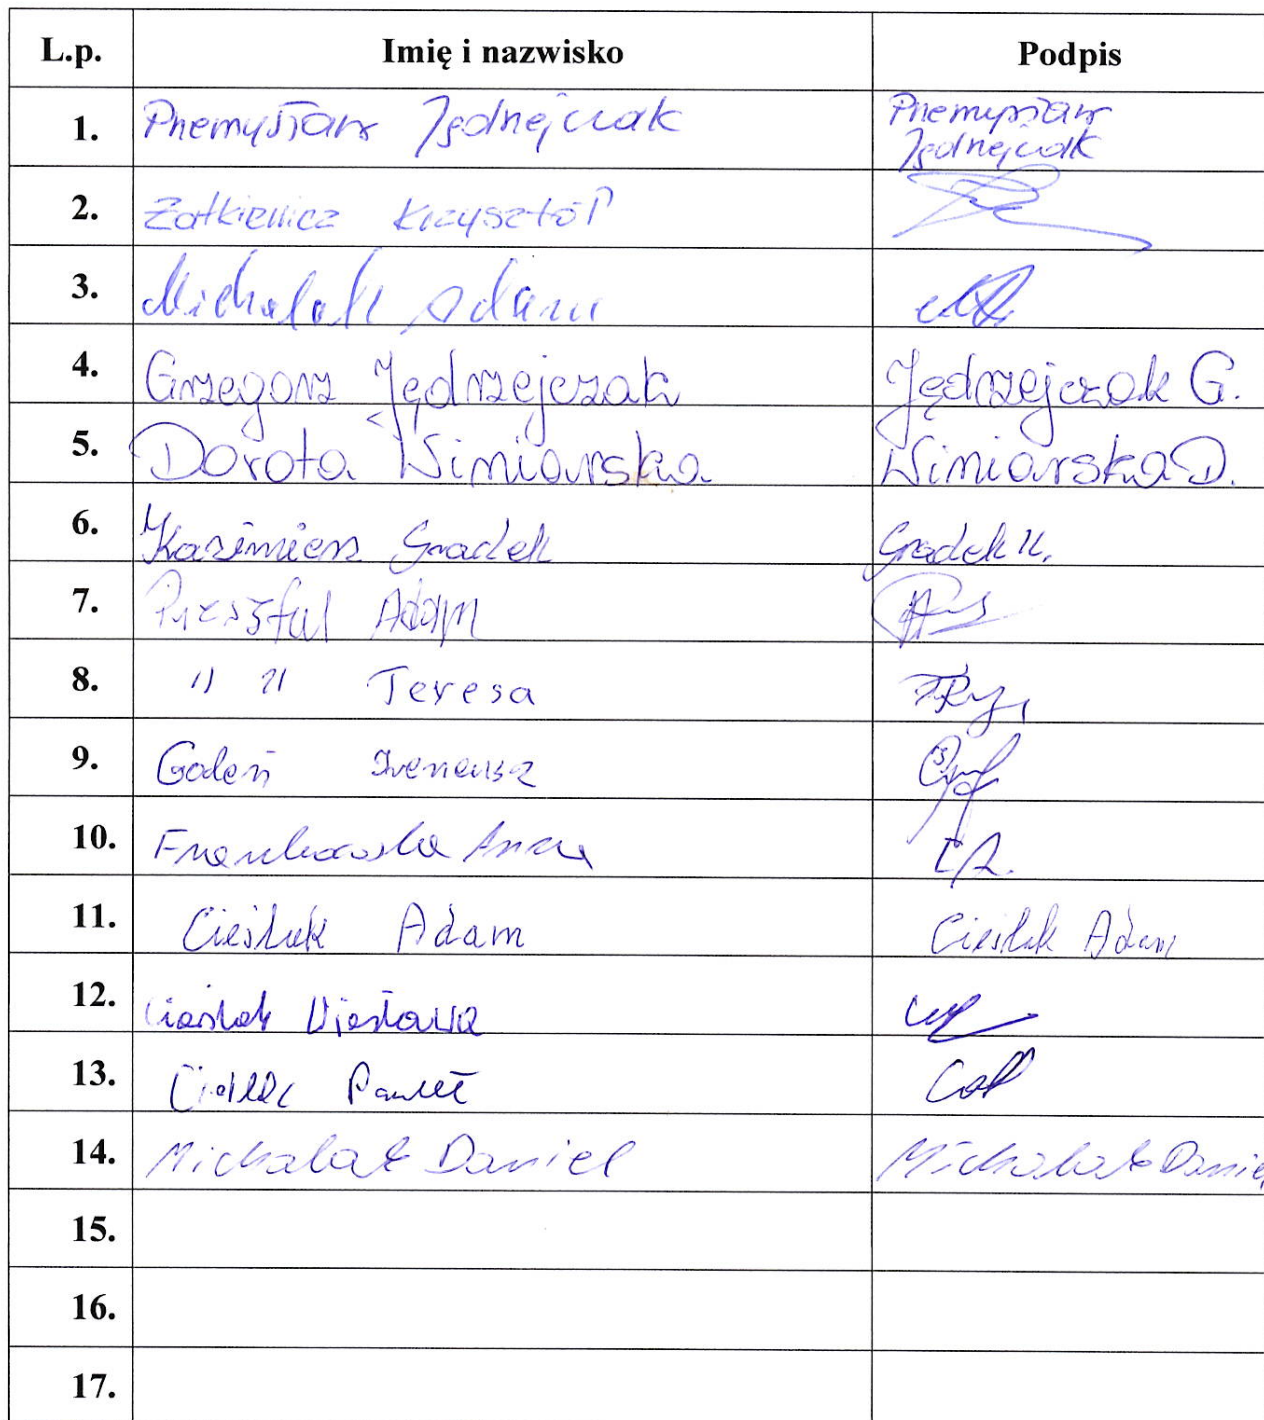 L.p. Imię i nazwisko Podpis
1. Przemysław Jędrzejczak Przemysław
Jędrzejczak
2. Żołkiewicz Krzysztof
3. Michalak Adam
4. Grzegorz Jędrzejczak Jędrzejczak G.
5. Dorota Winiarska Winiarska D.
6. Kazimierz Gradek Gradek K.
7. Adam
8. " " Teresa
9. Goleń Ireneusz
10. Frankowska Anna
11. Cieślak Adam Cieślak Adam
12. Cieślak Wiesława
13. Paweł
14. Michalak Daniel Michalak Daniel
15.
16.
17.